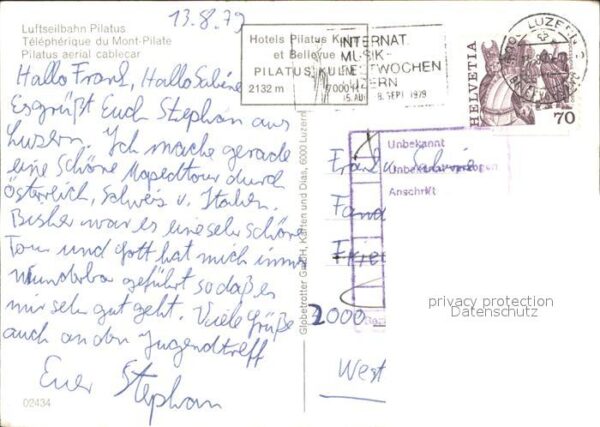 13.8.79
Luftseilbahn Pilatus
Téléphérique du Mont-Pilate
Pilatus aerial cablecar
Hotels Pilatus Kulm
et Bellevue
PILATUS/KULM
2132 m 7000 ft
INTERNAT.
MUSIK-
FESTWOCHEN
LUZERN
15. AUG. 8. SEPT. 1979
LUZERN
HELVETIA
70
Hallo Frank, Hallo Sabine
Es grüßt Euch Stephan aus
Luzern. Ich mache gerade
eine schöne Mopedtour durch
Österreich, Schweiz u. Italien.
Bisher war es eine sehr schöne
Tour und Gott hat mich immer
wunderbar geführt so daß es
mir sehr gut geht. Viele Grüße
auch an den Jugendtreff
Euer Stephan
02434
Globetrotter GmbH, Karten und Dias, 6000 Luzern
Unbekannt
Unbekannt verzogen
Anschrift
Frank u. Sabine
2000
West
privacy protection
Datenschutz